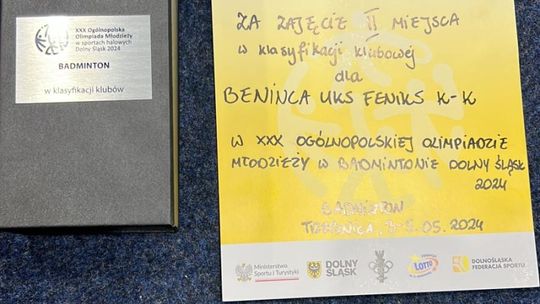 XXX Ogólnopolska
Olimpiada Młodzieży
w sportach halowych
Dolny Śląsk 2024
BADMINTON
w klasyfikacji klubów
ZA ZAJĘCIE II MIEJSCA
w klasyfikacji klubowej
dla
BENINCA UKS FENIKS K-K
W XXX OGÓLNOPOLSKIEJ OLIMPIADZIE
MŁODZIEŻY W BADMINTONIE DOLNY ŚLĄSK
2024
BADMINTON
TRZEBNICA, 3-5.05.2024
Ministerstwo
Sportu i Turystyki
DOLNY
ŚLĄSK
LOTTO
DOLNOŚLĄSKA
FEDERACJA SPORTU